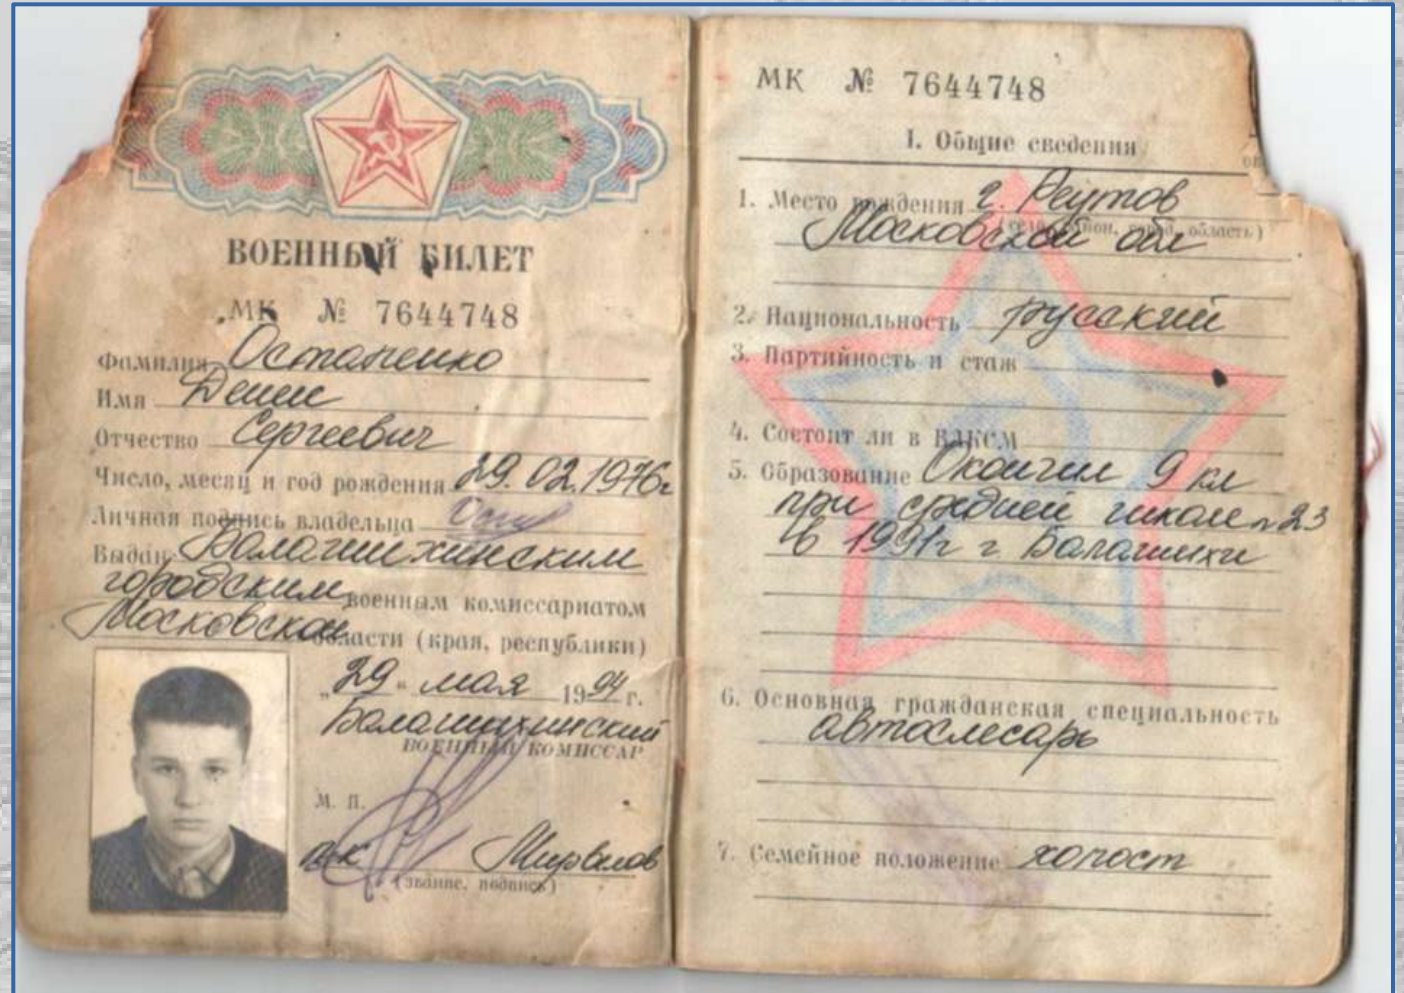 ВОЕННЫЙ БИЛЕТ
МК № 7644748
Фамилия Остапенко
Имя Денис
Отчество Сергеевич
Число, месяц и год рождения 29.02.1976г
Личная подпись владельца
Выдан Балашихинским
городским военным комиссариатом
Московской области (края, республики)
„29" мая 1994 г.
Балашихинский
ВОЕННЫЙ КОМИССАР
М. П.
(звание, подпись)
МК № 7644748
I. Общие сведения
1. Место рождения г. Реутов
(село, район, город, область)
Московской обл
2. Национальность русский
3. Партийность и стаж
4. Состоит ли в ВЛКСМ
5. Образование Окончил 9 кл
при средней школе № 23
в 1991г г Балашихи
6. Основная гражданская специальность
автослесарь
7. Семейное положение холост